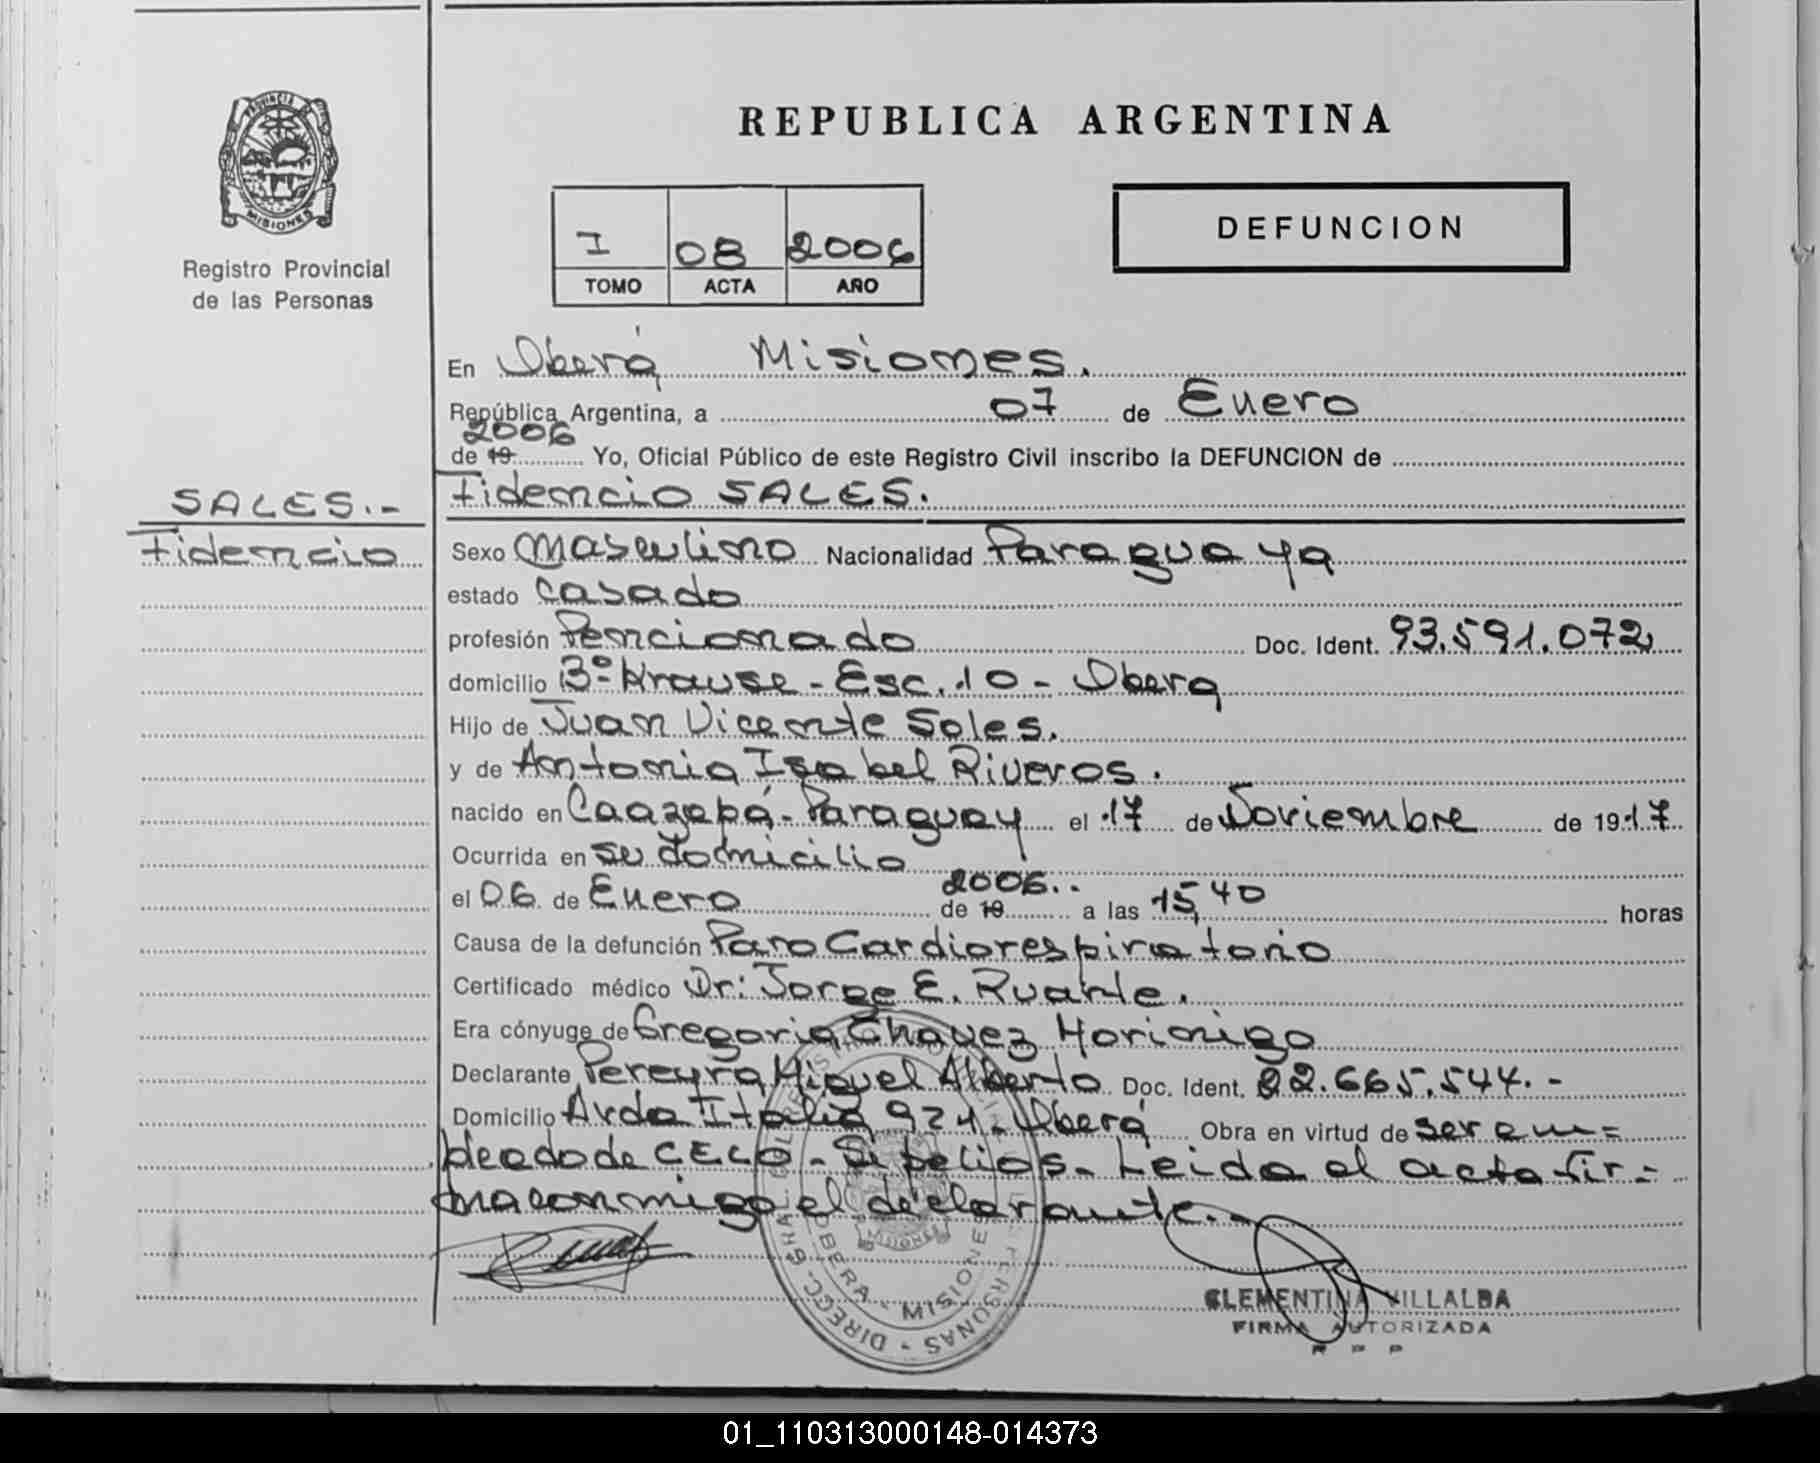 PROVINCIA DE
MISIONES
Registro Provincial
de las Personas
REPUBLICA ARGENTINA
I 08 2006
TOMO ACTA AÑO
DEFUNCION
En Oberá Misiones.
República Argentina, a 07 de Enero
2006
de 19 Yo, Oficial Público de este Registro Civil inscribo la DEFUNCION de
Fidencio SALES.
SALES.-
Fidencio
Sexo Masculino Nacionalidad Paraguaya
estado Casado
profesión Pencionado Doc. Ident. 93.591.072
domicilio Bº Krause - Esc. 10 - Obera
Hijo de Juan Vicente Soles.
y de Antonia Isabel Riveros.
nacido en Caazapá - Paraguay el 17 de Noviembre de 1917
Ocurrida en su domicilio
2006..
el 06 de Enero de 19 a las 15,40 horas
Causa de la defunción Paro Cardiorespiratorio
Certificado médico Dr: Jorge E. Ruarte.
Era cónyuge de Gregoria Chavez Morinigo
Declarante Pereyra, Miguel Alberto Doc. Ident. 22.665.544.-
Domicilio Avda Italia 921 - Oberá Obra en virtud de ser em=
pleado de CELO - Sepelios - Leida el acta fir=
ma conmigo el declarante.-
OBERA - MISIONES
CLEMENTINA VILLALBA
FIRMA AUTORIZADA
R P P
01_110313000148-014373